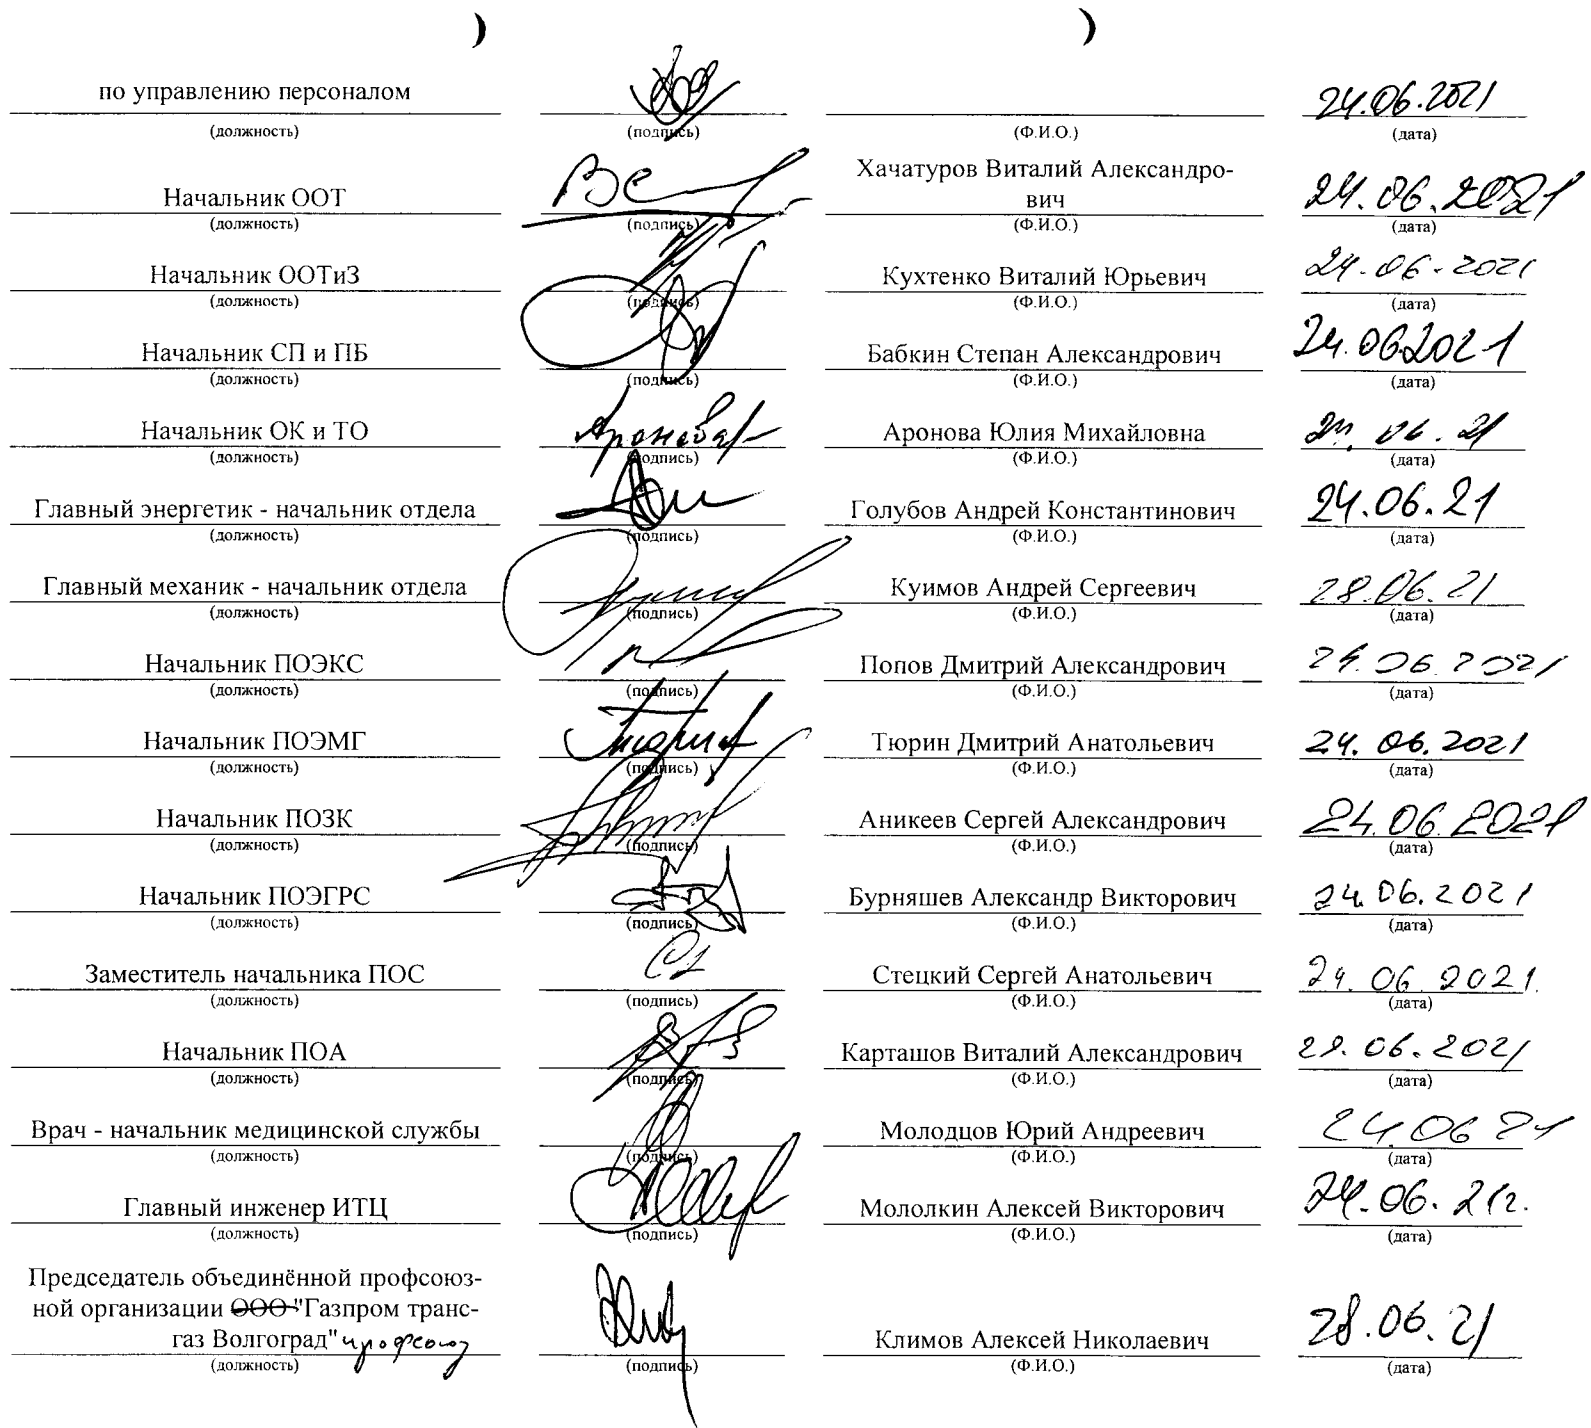 по управлению персоналом 24.06.2021
(должность) (подпись) (Ф.И.О.) (дата)
Хачатуров Виталий Александро-
Начальник ООТ вич 24.06.2021
(должность) (подпись) (Ф.И.О.) (дата)
Начальник ООТиЗ Кухтенко Виталий Юрьевич 24.06.2021
(должность) (подпись) (Ф.И.О.) (дата)
Начальник СП и ПБ Бабкин Степан Александрович 24.06.2021
(должность) (подпись) (Ф.И.О.) (дата)
Начальник ОК и ТО Аронова Юлия Михайловна 24.06.21
(должность) (подпись) (Ф.И.О.) (дата)
Главный энергетик - начальник отдела Голубов Андрей Константинович 24.06.21
(должность) (подпись) (Ф.И.О.) (дата)
Главный механик - начальник отдела Куимов Андрей Сергеевич 28.06.21
(должность) (подпись) (Ф.И.О.) (дата)
Начальник ПОЭКС Попов Дмитрий Александрович 24.06.2021
(должность) (подпись) (Ф.И.О.) (дата)
Начальник ПОЭМГ Тюрин Дмитрий Анатольевич 24.06.2021
(должность) (подпись) (Ф.И.О.) (дата)
Начальник ПОЗК Аникеев Сергей Александрович 24.06.2021
(должность) (подпись) (Ф.И.О.) (дата)
Начальник ПОЭГРС Бурняшев Александр Викторович 24.06.2021
(должность) (подпись) (Ф.И.О.) (дата)
Заместитель начальника ПОС Стецкий Сергей Анатольевич 24.06.2021.
(должность) (подпись) (Ф.И.О.) (дата)
Начальник ПОА Карташов Виталий Александрович
(должность) (подпись) (Ф.И.О.) (дата)
Врач - начальник медицинской службы Молодцов Юрий Андреевич 24.06 21
(должность) (подпись) (Ф.И.О.) (дата)
Главный инженер ИТЦ Мололкин Алексей Викторович 24.06.21г.
(должность) (подпись) (Ф.И.О.) (дата)
Председатель объединённой профсоюз-
ной организации ООО "Газпром транс-
газ Волгоград" профсоюз Климов Алексей Николаевич 28.06.21
(должность) (подпись) (Ф.И.О.) (дата)